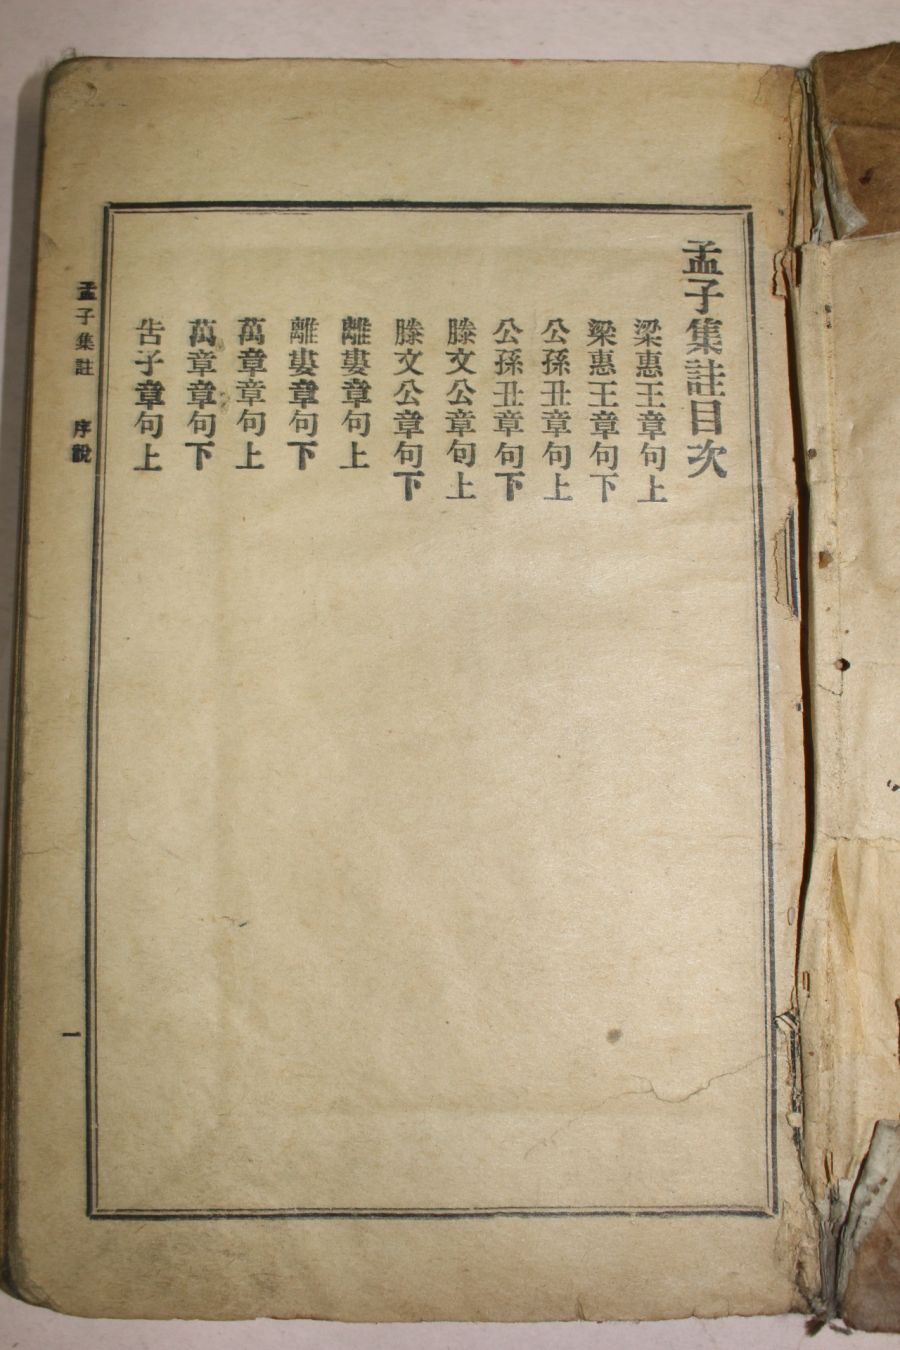 孟子集註目次
梁惠王章句上
梁惠王章句下
公孫丑章句上
公孫丑章句下
滕文公章句上
滕文公章句下
離婁章句上
離婁章句下
萬章章句上
萬章章句下
告子章句上
孟子集註 序說
一